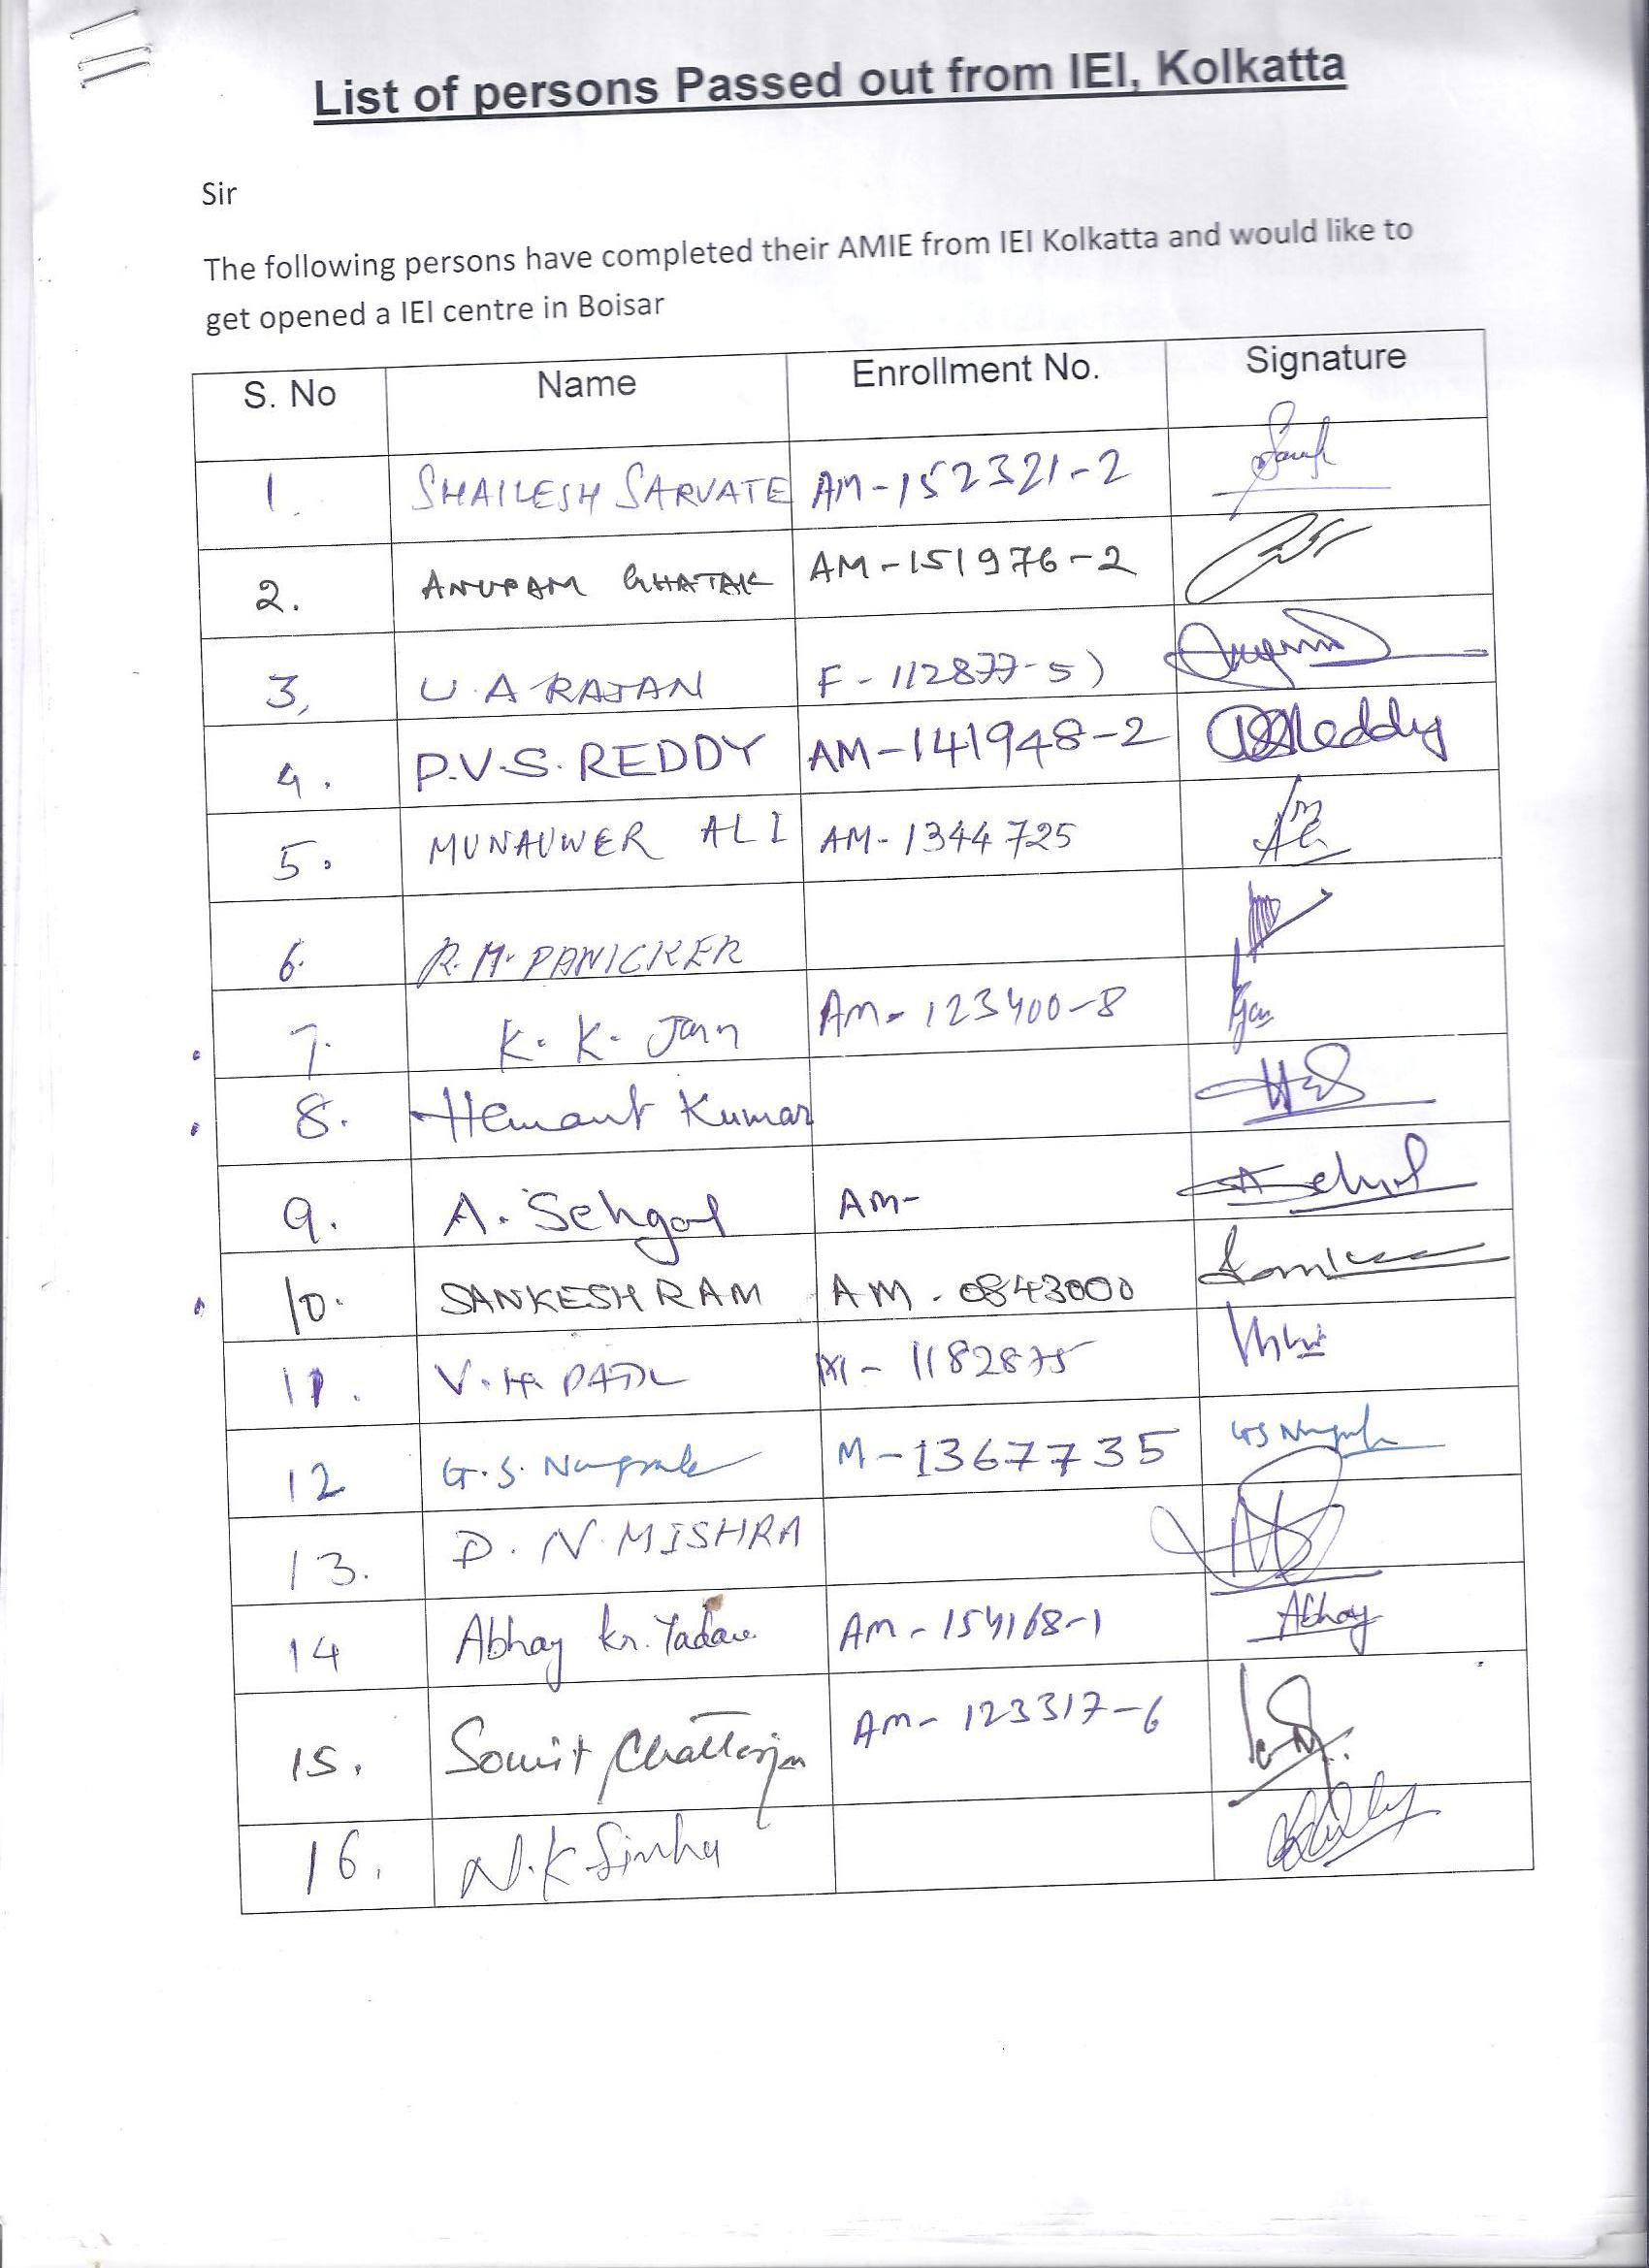 List of persons Passed out from IEI, Kolkatta
Sir
The following persons have completed their AMIE from IEI Kolkatta and would like to
get opened a IEI centre in Boisar
S. No Name Enrollment No. Signature
1. SHAILESH SARVATE AM-152321-2
2. ANUPAM GHATAK AM-151976-2
3, U. A RAJAN F-112877-5)
4. P.V.S. REDDY AM-141948-2 Reddy
5. MUNAUWER ALI AM-1344725
6. R.M. PANICKER
7. K. K. Jain AM-123400-8
8. Hemant Kumar
9. A. Sehgal AM- A Sehgal
10. SANKESH RAM AM-0843000
11. V.H. PATIL M-1182875
12 G.S. M-1367735 GS
13. D. N. MISHRA
14 Abhay Kr. Yadav AM-154168-1 Abhay
15. Soumit Chatterjee AM-123317-6
16. N.K Sinha